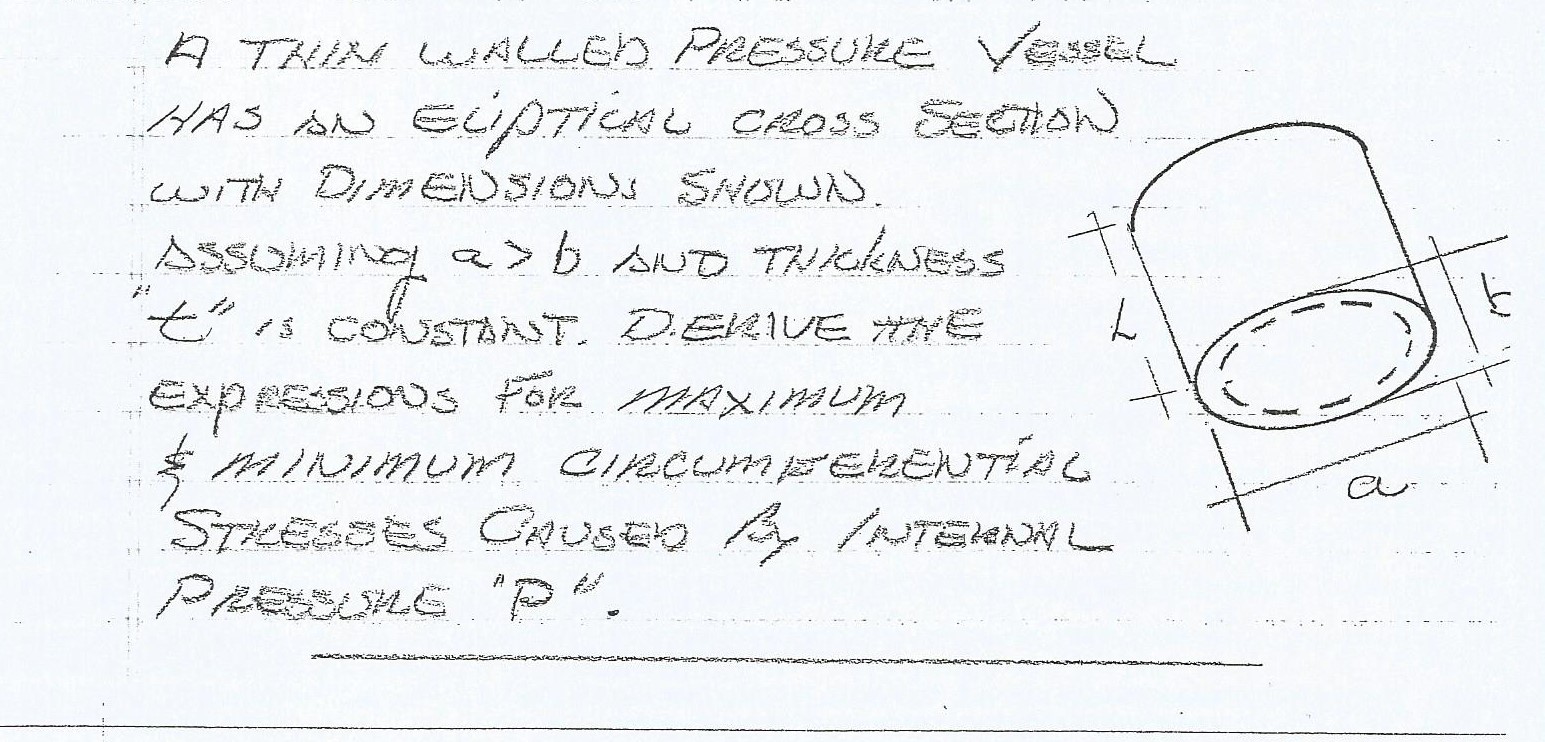 A THIN WALLED PRESSURE VESSEL
HAS AN ELIPTICAL CROSS SECTION
WITH DIMENSIONS SHOWN.
ASSUMING a > b AND THICKNESS
"t" IS CONSTANT. DERIVE THE
EXPRESSIONS FOR MAXIMUM
& MINIMUM CIRCUMFERENTIAL
STRESSES CAUSED By INTERNAL
PRESSURE "P".
L
b
a